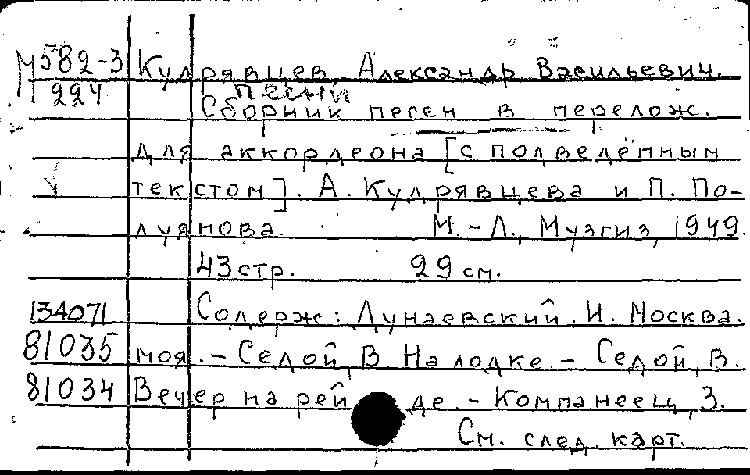 М582-3 Кудрявцев, Александр Васильевич.
224 Песни
Сборник песен в перелож.
для аккордеона [с подведённым
текстом]. А. Кудрявцева и П. По-
луянова. М.-Л., Музгиз, 1949.
43 стр. 29 см.
134071 Содерж: Дунаевский, И. Москва
81035 моя. - Седой, В. На лодке. - Седой, В.
81034 Вечер на рейде. - Компанеец, З.
См. след. карт.